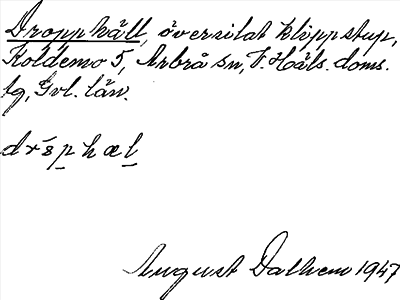 Dropphäll, översilat klippstup,
Koldemo 5, Arbrå sn, V. Häls. doms.
tg, Gvl. län.
August Dalhem 1947